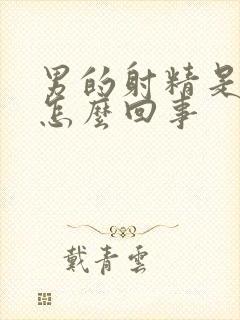 男的射精是
怎麼回事
戴青雲